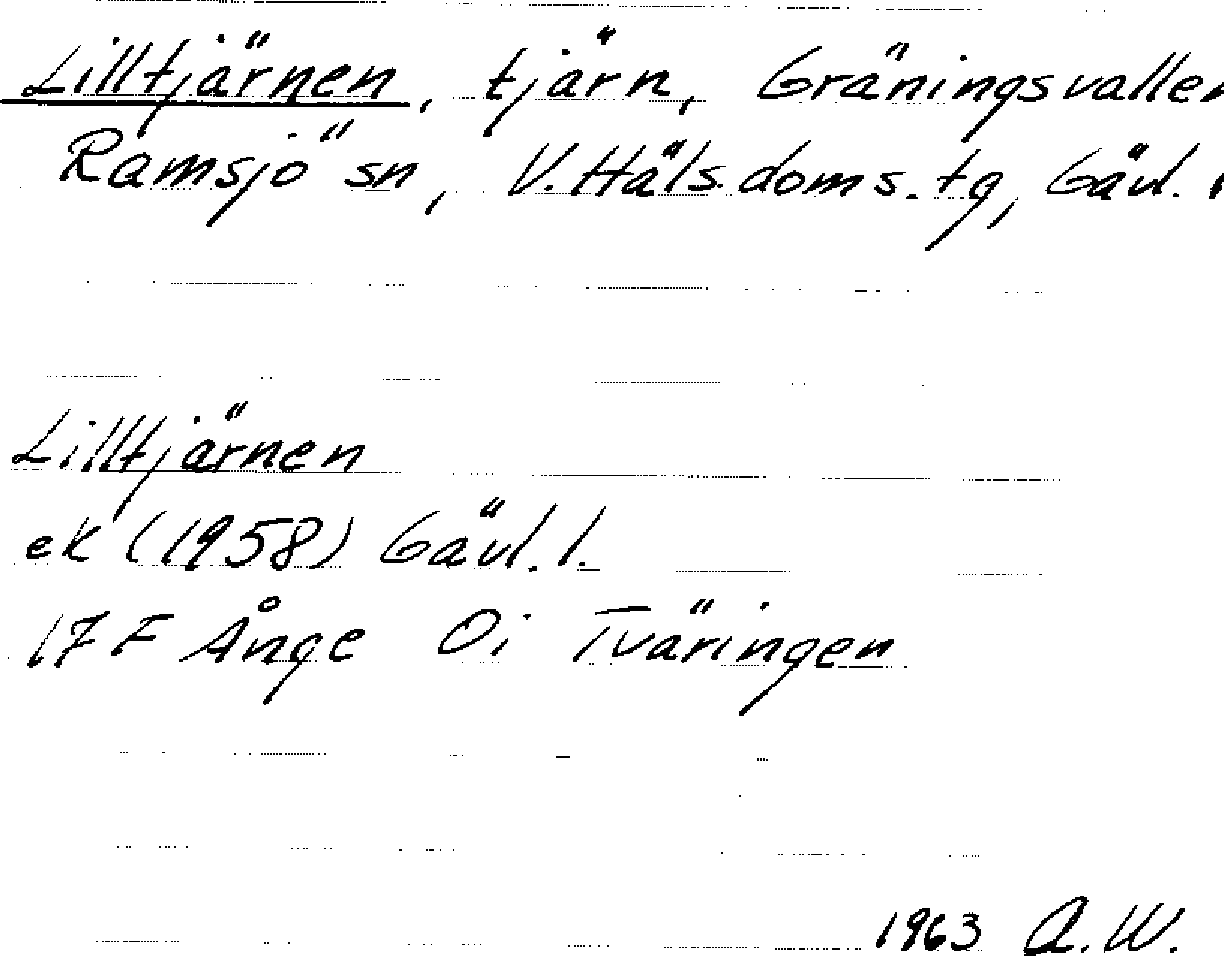 Lilltjärnen, tjärn, Gräningsvallen
Ramsjö sn, V.Häls.doms.tg, Gävl.
Lilltjärnen
ek (1958) Gävl.l.
17F Ånge Oi Tväringen
1963 A.W.